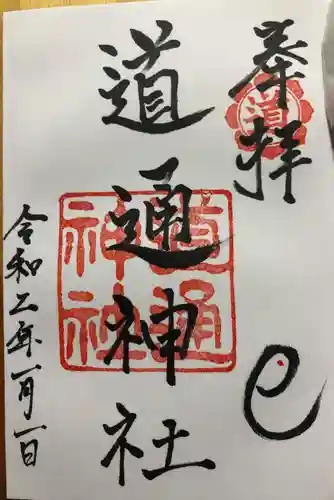 奉拝
道
道通神社
道通
神社
令和二年一月一日